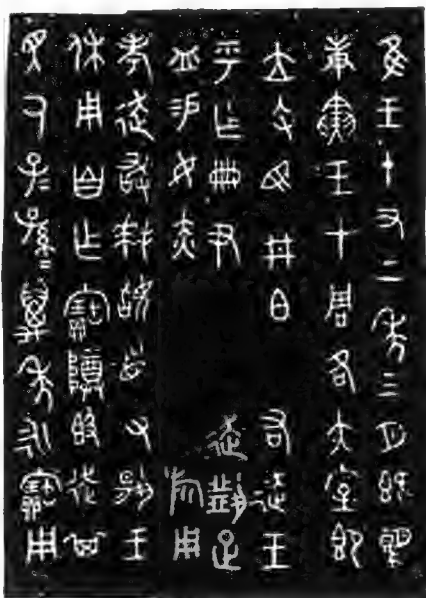 隹王十又二年三月既望
庚寅王才周各大室即
立司馬井白右走王
乎乍冊尹走疋
易女赤旂用
事走敢拜𩒨首對揚王
休用自乍寶尊𣪘走其
眔氒子=孫=萬年永寶用